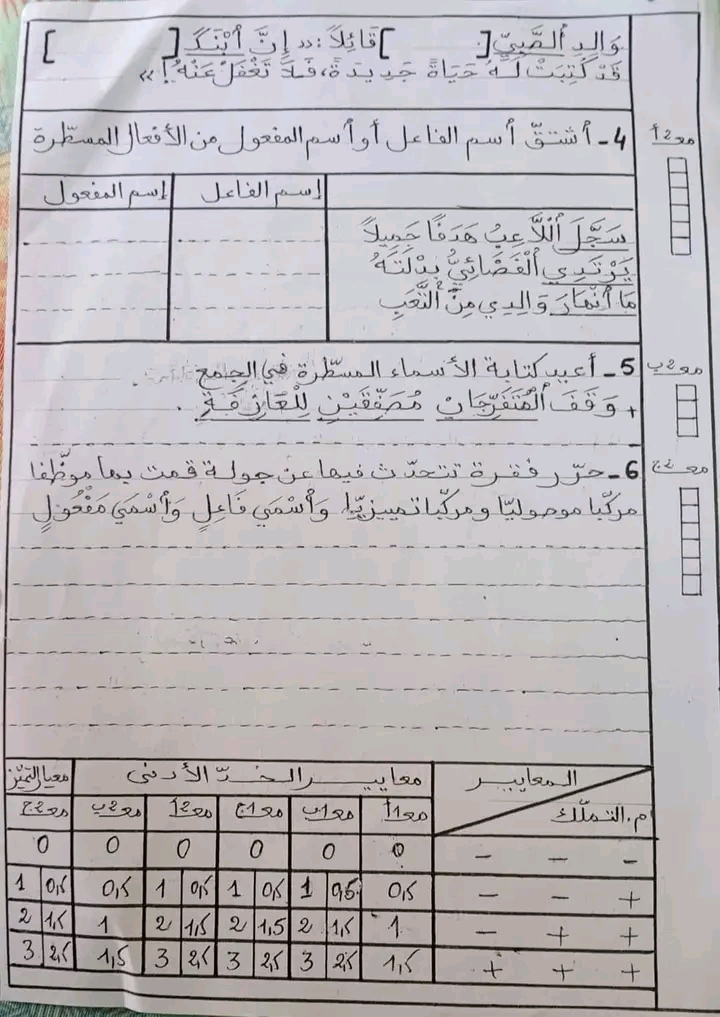 وَالِدِ الصَّبِيِّ [ ] قَائِلاً : « إِنَّ ابْنَكَ [ ]
قَدْ كُتِبَتْ لَهُ حَيَاةٌ جَدِيدَةٌ، فَلاَ تَغْفَلْ عَنْهُ ! »
4 - أشتقّ أسم الفاعل أو أسم المفعول من الأفعال المسطّرة
مع2أ
إسم الفاعل إسم المفعول
سَجَّلَ اللاَّعِبُ هَدَفًا جَمِيلاً
يَرْتَدِي الْفَضَائِيُّ بِدْلَتَهُ
مَا أنْهَارَ وَالِدِي مِنَ التَّعَبِ
5 - أعيد كتابة الأسماء المسطّرة في الجمع
مع2ب
+ وَقَفَ الْمُتَفَرِّجَانِ مُصَفِّقَيْنِ لِلْعَازِفَةِ .
6 - حرّر فقرة تتحدّث فيها عن جولة قمت بها موظّفا
مع2ج
مركّبا موصوليّا ومركّبا تمييزيّا وَأسْمَي فَاعِلٍ وَأسْمَي مَفْعُولٍ
المعايير معايير الحدّ الأدنى معيار التميّز
م. التملّك مع1أ مع1ب مع1ج مع2أ مع2ب مع2ج
- - - 0 0 0 0 0 0
+ - - 0,5 0,5 1 0,5 1 0,5 1 0,5 0,5 1
+ + - 1 1,5 2 1,5 2 1,5 2 1 1,5 2
+ + + 1,5 2,5 3 2,5 3 2,5 3 1,5 2,5 3